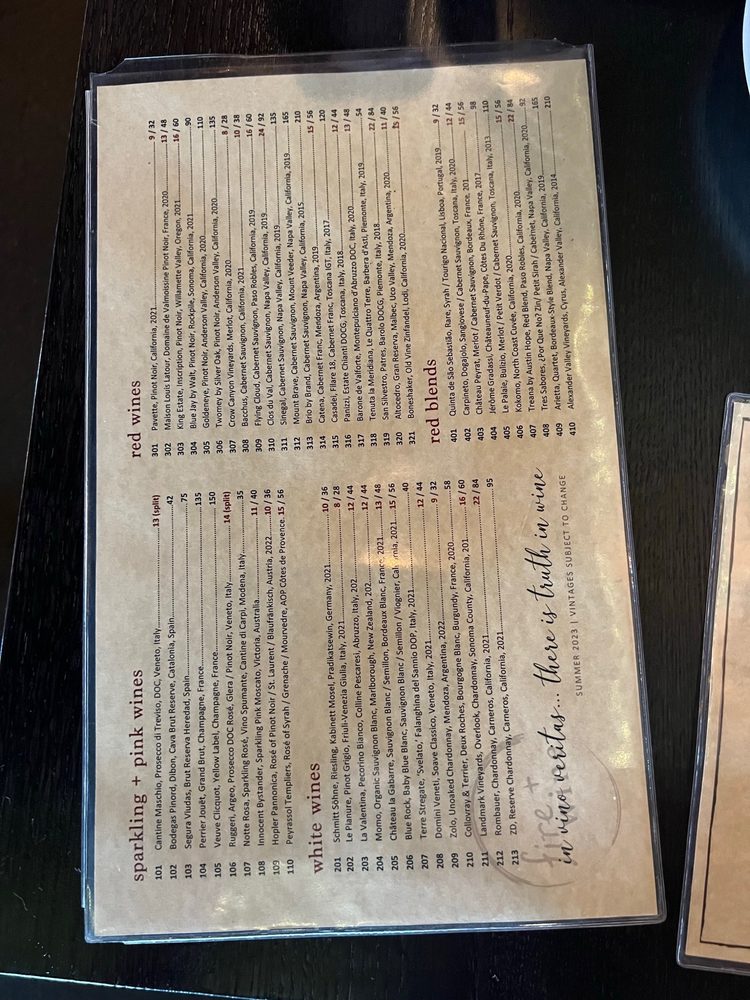 sparkling + pink wines
101 Cantine Maschio, Prosecco di Treviso, DOC, Veneto, Italy 13 (split)
102 Bodegas Pinord, Dibon, Cava Brut Reserve, Catalonia, Spain 42
103 Segura Viudas, Brut Reserva Heredad, Spain 75
104 Perrier Jouët, Grand Brut, Champagne, France 135
105 Veuve Clicquot, Yellow Label, Champagne, France 150
106 Ruggeri, Argeo, Prosecco DOC Rosé, Glera / Pinot Noir, Veneto, Italy 14 (split)
107 Notte Rosa, Sparkling Rosé, Vino Spumante, Cantine di Carpi, Modena, Italy 35
108 Innocent Bystander, Sparkling Pink Moscato, Victoria, Australia 11 / 40
109 Hopler Pannonica, Rosé of Pinot Noir / St. Laurent / Blaufränkisch, Austria, 2022 10 / 36
110 Peyrassol Templiers, Rosé of Syrah / Grenache / Mourvedre, AOP Côtes de Provence 15 / 56
white wines
201 Schmitt Söhne, Riesling, Kabinett Mosel, Pradikatsewin, Germany, 2021 10 / 36
202 Le Pianure, Pinot Grigio, Friuli-Venezia Giulia, Italy, 2021 8 / 28
203 La Valentina, Pecorino Bianco, Colline Pescaresi, Abruzzo, Italy, 202 12 / 44
204 Momo, Organic Sauvignon Blanc, Marlborough, New Zealand, 202 12 / 44
205 Château la Gabarre, Sauvignon Blanc / Semillon, Bordeaux Blanc, France, 2021 13 / 48
206 Blue Rock, Baby Blue Blanc, Sauvignon Blanc / Semillon / Viognier, California, 2021 15 / 56
207 Terre Stregate, 'Svelato,' Falanghina del Sannio DOP, Italy, 2021 40
208 Domini Veneti, Soave Classico, Veneto, Italy, 2021 12 / 44
209 Zolo, Unoaked Chardonnay, Mendoza, Argentina, 2022 9 / 32
210 Collovray & Terrier, Deux Roches, Bourgogne Blanc, Burgundy, France, 2020 58
211 Landmark Vineyards, Overlook, Chardonnay, Sonoma County, California, 201 16 / 60
212 Rombauer, Chardonnay, Carneros, California, 2021 22 / 84
213 ZD, Reserve Chardonnay, Carneros, California, 2021 95
fire +
in vino veritas... there is truth in wine
SUMMER 2023 | VINTAGES SUBJECT TO CHANGE
red wines
301 Pavette, Pinot Noir, California, 2021 9 / 32
302 Maison Louis Latour, Domaine de Valmoissine Pinot Noir, France, 2020 13 / 48
303 King Estate, Inscription, Pinot Noir, Willamette Valley, Oregon, 2021 16 / 60
304 Blue Jay by Walt, Pinot Noir - Rockpile, Sonoma, California, 2021 90
305 Goldeneye, Pinot Noir, Anderson Valley, California, 2020 110
306 Twomey by Silver Oak, Pinot Noir, Anderson Valley, California, 2020 135
307 Crow Canyon Vineyards, Merlot, California, 2020 8 / 28
308 Bacchus, Cabernet Sauvignon, California, 2021 10 / 38
309 Flying Cloud, Cabernet Sauvignon, Paso Robles, California, 2019 16 / 60
310 Clos du Val, Cabernet Sauvignon, Napa Valley, California, 2019 24 / 92
311 Sinegal, Cabernet Sauvignon, Napa Valley, California, 2019 135
312 Mount Brave, Cabernet Sauvignon, Mount Veeder, Napa Valley, California, 2019 165
313 Brio by Brand, Cabernet Sauvignon, Napa Valley, California, 2015 210
314 Catena, Cabernet Franc, Mendoza, Argentina, 2019 15 / 56
315 Casadei, Filare 18, Cabernet Franc, Toscana IGT, Italy, 2017 120
316 Panizzi, Estate Chianti DOCG, Toscana, Italy, 2018 12 / 44
317 Barone de Valforte, Montepulciano d'Abruzzo DOC, Italy, 2020 13 / 48
318 Tenuta la Meridiana, Le Quattro Terre, Barbera d'Asti, Piemonte, Italy, 2019 54
319 San Silvestro, Patres, Barolo DOCG, Piemonte, Italy, 2018 22 / 84
320 Altocedro, Gran Reserva, Malbec, Uco Valley, Mendoza, Argentina, 2020 11 / 40
321 Boneshaker, Old Vine Zinfandel, Lodi, California, 2020 15 / 56
red blends
401 Quinta de São Sebastião, Rare, Syrah / Tourigo Nacional, Lisboa, Portugal, 2019 9 / 32
402 Carpineto, Dogajolo, Sangiovese / Cabernet Sauvignon, Toscana, Italy, 2020 12 / 44
403 Château Peyrat, Merlot / Cabernet Sauvignon, Bordeaux, France, 201 15 / 56
404 Jerôme Gradassi, Châteauneuf-du-Pape, Côtes Du Rhône, France, 2017 98
405 Le Palaie, Bulizio, Merlot / Petit Verdot / Cabernet Sauvignon, Toscana, Italy, 2013 110
406 Kokomo, North Coast Cuvée, California, 2020 15 / 56
407 Treana by Austin Hope, Red Blend, Paso Robles, California, 2020 22 / 84
408 Tres Sabores, ¿Por Que No? Zin/ Petit Sirah / Cabernet, Napa Valley, California, 2020 92
409 Arietta, Quartet, Bordeaux-Style Blend, Napa Valley, California, 2019 165
410 Alexander Valley Vineyards, Cyrus, Alexander Valley, California, 2014 210